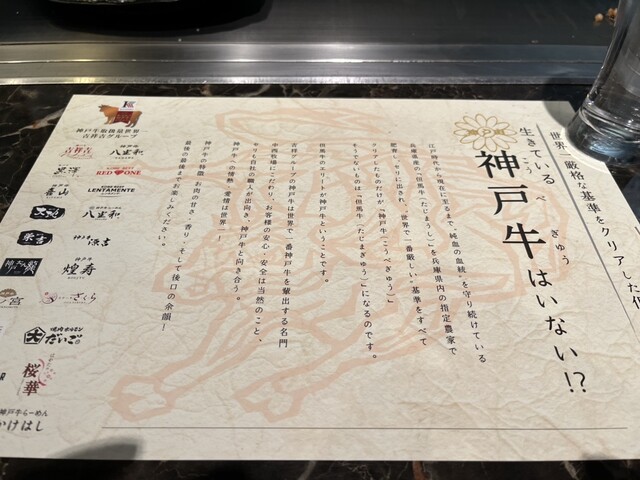 世界一厳格な基準をクリアした
生きている
神戸牛はいない!?
こうべぎゅう
江戸時代から現在に至るまで“純血の血統”を守り続けている
兵庫県産の「但馬牛(たじまうし)」を兵庫県内の指定農家で
肥育し、セリに出され、“世界で一番厳しい”基準をすべて
クリアしたものだけが「神戸牛(こうべぎゅう)」
そうでないものは、「但馬牛(たじまぎゅう)」になるのです。
但馬牛のエリートが神戸牛ということです。
吉祥吉グループの神戸牛は世界で一番神戸牛を輩出する名門
中西牧場にこだわり、お客様の安心・安全は当然のこと、
セリも自社の職人が出向き、神戸牛と向き合う。
神戸牛への情熱、愛情は世界一!
神戸牛の特徴、お肉の甘さ・香り・そして後口の余韻!
最後の最後までお楽しみください。
神戸牛取扱量世界一
吉祥吉グループ
吉祥吉
八坐和
黒澤
RED ONE
KOBE BEEF
LENTAMENTE
八坐和
榮吉
神戸牛 源吉
神戸牛
煌寿
さくら
焼肉ホルモン
だいご
桜華
神戸牛らーめん
かけはし